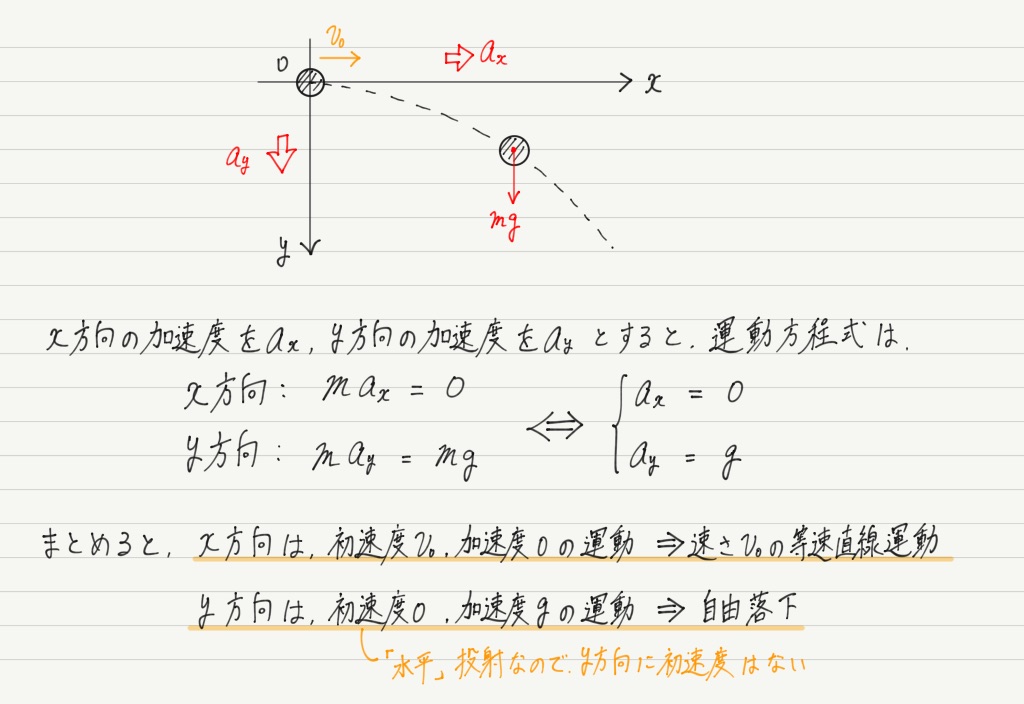 v₀
0
aₓ
x
a_y
mg
y
x方向の加速度をaₓ, y方向の加速度をa_yとすると, 運動方程式は,
x方向: maₓ = 0 ⇔ { aₓ = 0
y方向: ma_y = mg a_y = g
まとめると, x方向は, 初速度v₀, 加速度0の運動 ⇒ 速さv₀の等速直線運動
y方向は, 初速度0, 加速度gの運動 ⇒ 自由落下
「水平」投射なので, y方向に初速度はない